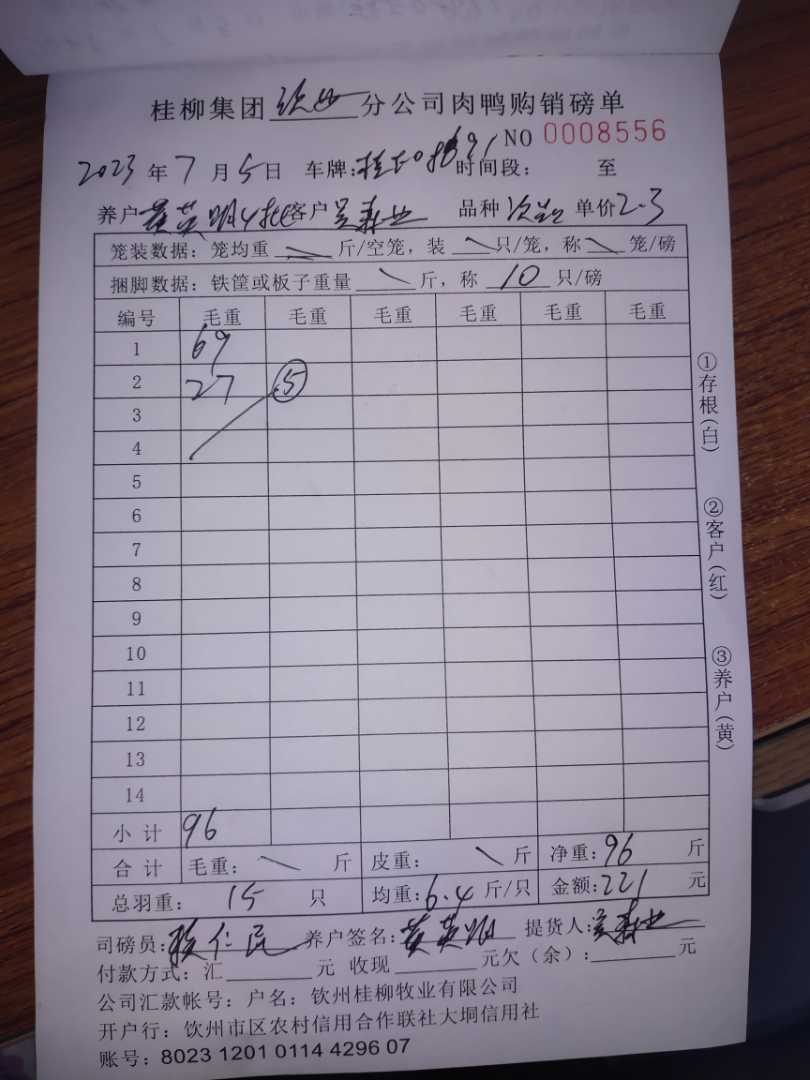 桂柳集团 钦州 分公司肉鸭购销磅单
NO 0008556
2023 年 7 月 5 日 车牌: 时间段: 至
养户 黄英明4批 客户 吴寿业 品种 次品 单价 2.3
笼装数据: 笼均重 斤/空笼, 装 只/笼, 称 笼/磅
捆脚数据: 铁筐或板子重量 斤, 称 10 只/磅
编号 毛重 毛重 毛重 毛重 毛重 毛重
1 69
2 27 ⑤
3
4
5
6
7
8
9
10
11
12
13
14
小计 96
合计 毛重: 斤 皮重: 斤 净重: 96 斤
总羽重: 15 只 均重: 6.4 斤/只 金额: 221 元
司磅员: 养户签名: 黄英明 提货人: 吴寿业
付款方式: 汇 元 收现 元欠(余): 元
公司汇款帐号: 户名: 钦州桂柳牧业有限公司
开户行: 钦州市区农村信用合作联社大垌信用社
账号: 8023 1201 0114 4296 07
①存根(白)
②客户(红)
③养户(黄)